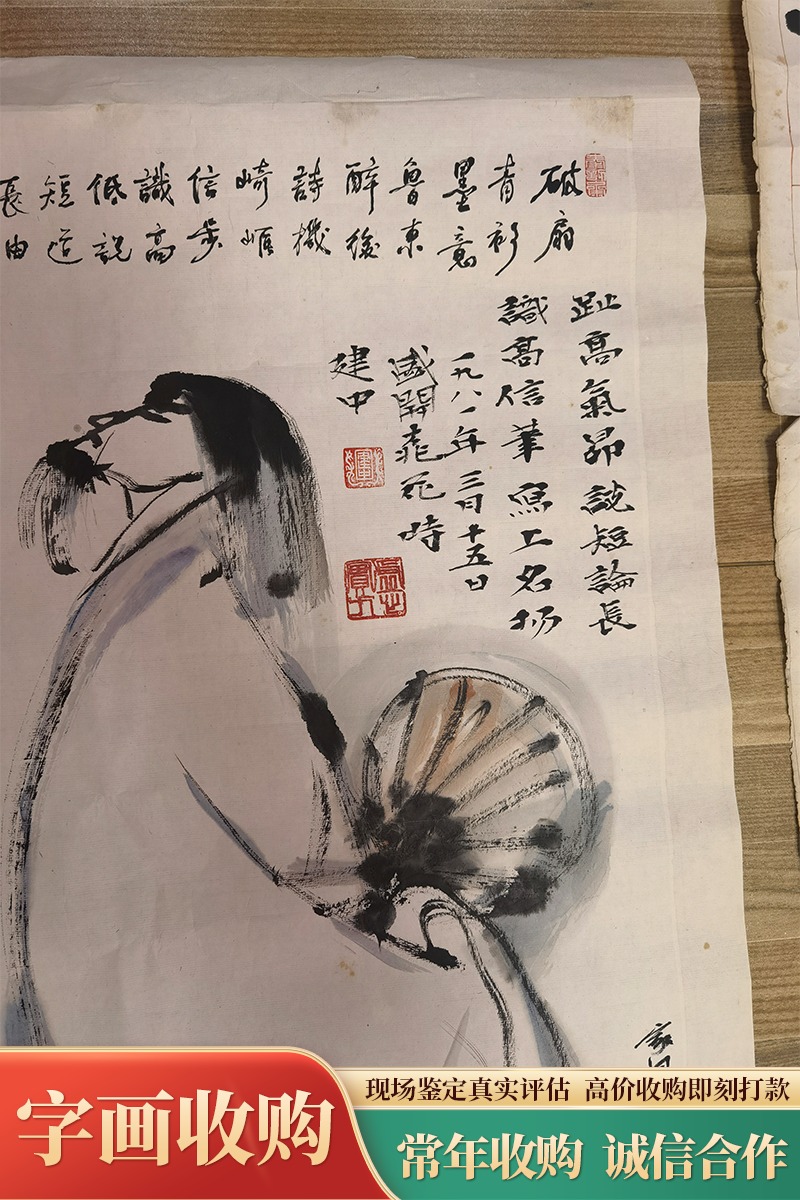 破扇
青衫
墨意
魯東
醉後
詩機
崎嶇
信步
識高
低說
短道
長由
趾高氣昂說短論長
識高信筆寫上名揚
一九八一年三月十五日
盛開花時
建中
字画收购
现场鉴定真实评估 高价收购即刻打款
常年收购 诚信合作